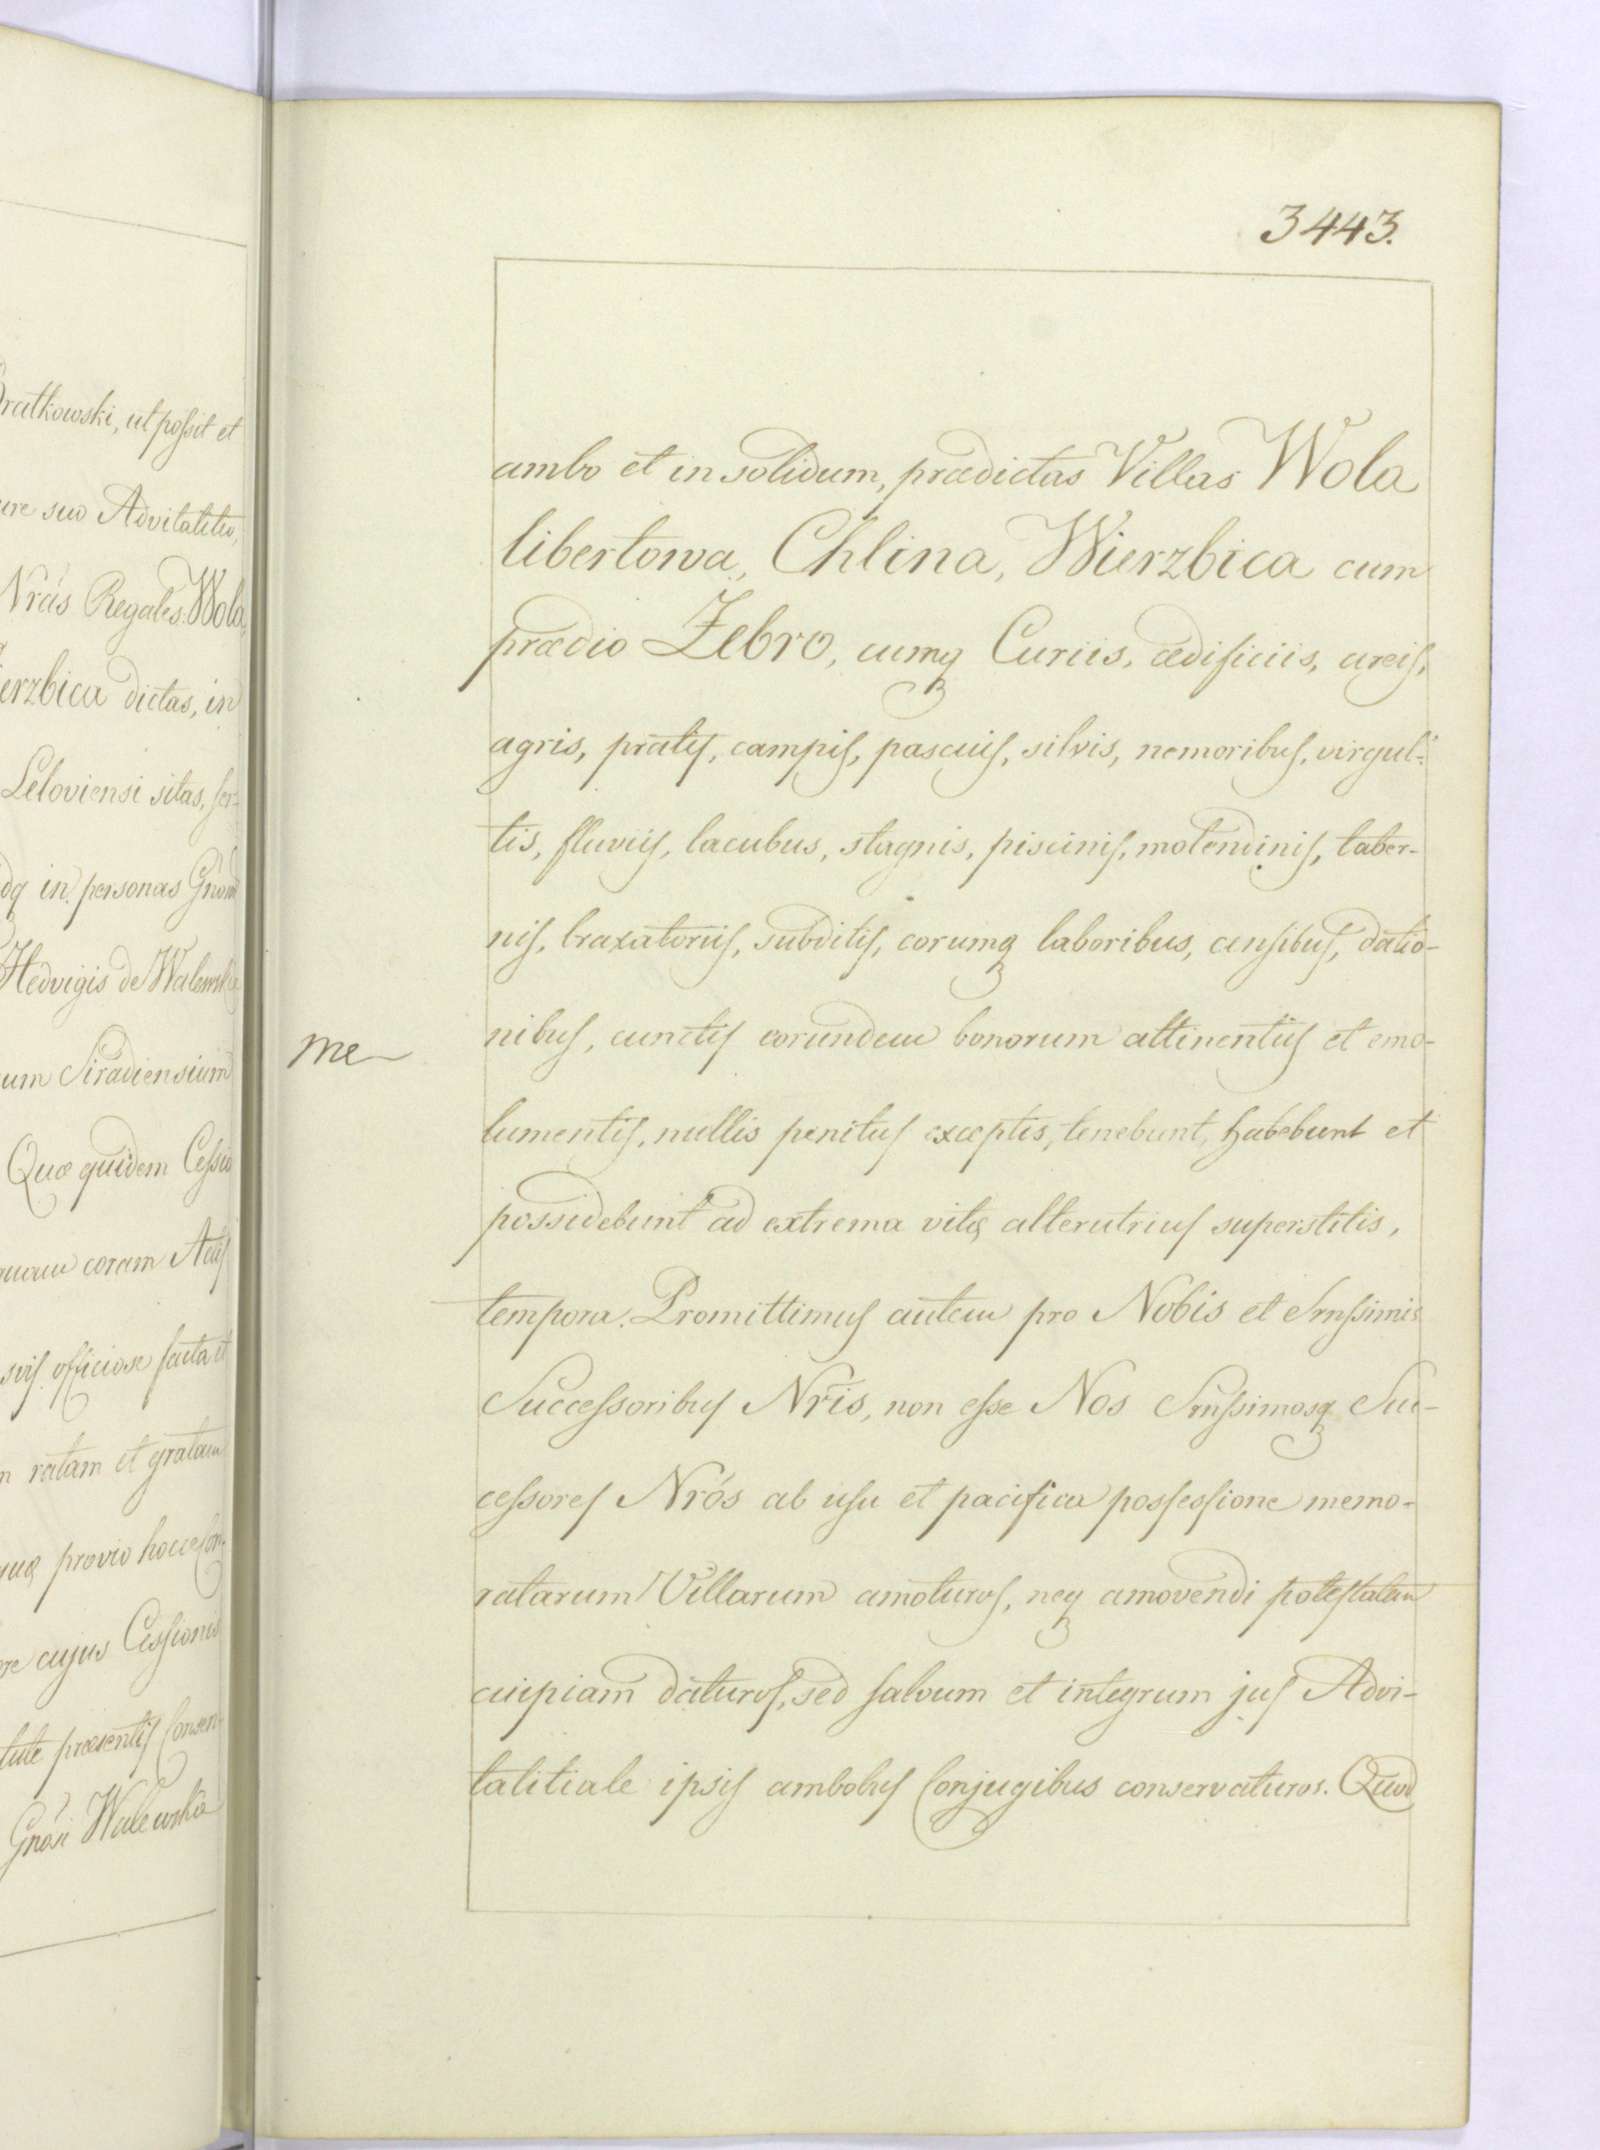 3443.
ambo et in solidum, prædictas Villas Wola
libertowa, Chlina, Wierzbica cum
prædio Zebro, cumq Curiis, ædificiis, areis,
agris, pratis, campis, pascuis, silvis, nemoribus, virgul-
tis, fluviis, lacubus, stagnis, piscinis, molendinis, taber-
nis, braxatoriis, subditis, eorumq laboribus, censibus, datio-
nibus, cunctis eorundem bonorum attinentiis et emo-
me
lumentis, nullis penitus exceptis, tenebunt, habebunt et
possidebunt ad extrema vitę alterutrius superstitis,
tempora. Promittimus autem pro Nobis et Srnssimis
Successoribus Nris, non esse Nos Srnssimosq Suc-
cessores Nros ab usu et pacifica possessione memo-
ratarum Villarum amoturos, neq amovendi potestatem
cuipiam daturos, sed salvum et integrum jus Advi-
talitiale ipsis ambobus Conjugibus conservaturos. Quod
ratkowski, ut possit et
ure suo Advitalitio,
Nras Regales Wola,
erzbica dictas, in
Leloviensi sitas, ser-
dq in personas
Hedvigis de Walewskie
um Siradiensium
Quæ quidem Cessio
coram Actis
officiose facta et
ratam et gratam
prævio hocce Con-
re cujus Cessionis
tute præsentis Consen-
Gnosi Walewskie